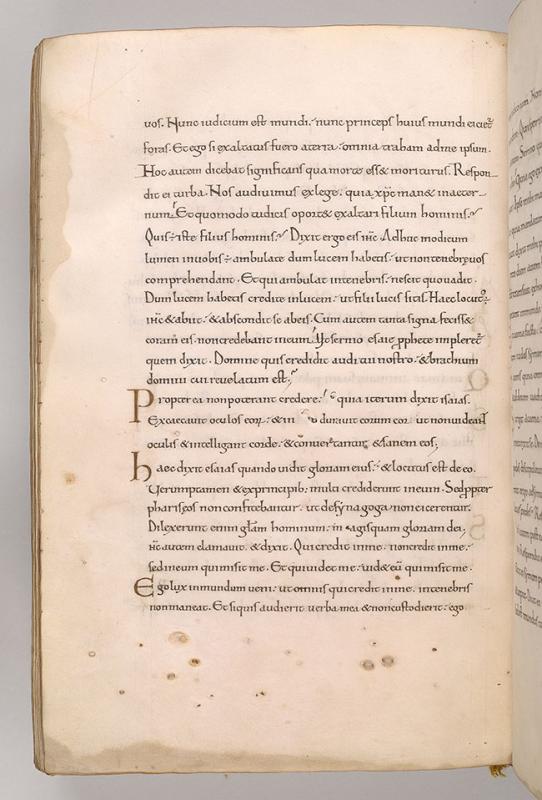 vos. Nunc iudicium est mundi. nunc princeps huius mundi eiciet᷑
foras. Et ego si exaltatus fuero aterra. omnia traham adme ipsum.
Hoc autem dicebat significans qua morte ess& moriturus. Respon-
dit ei turba. Nos audiuimus exlege. quia xp̅c man& inaeter-
num. Et quomodo tu dicis oport& exaltari filium hominis.
Quis ÷ iste filius hominis. Dixit ergo eis ih̅c. Adhuc modicum
lumen inuobis ÷ ambulate dum lucem habetis. ut nontenebrę uos
comprehendant. Et qui ambulat intenebris. nescit quo uadit.
Dum lucem habetis credite inlucem. ut filii lucis sitis. Haec locut᷒ ÷
ih̅c & abiit. & abscondit se abeis. Cum autem tanta signa feciss&
coram eis. non credebant in eum. Ut sermo esaie p̱phete impleret᷑
quem dixit. Domine quis credidit auditui nostro. & brachium
domini cui reuelatum est.
Propterea non poterant credere. quia iterum dixit isaias.
Excaecauit oculos eoꝝ. & in durauit eorum cor. ut non uideant
oculis & intelligant corde. & conuertantur & sanem eos.
haec dixit esaias quando uidit gloriam eius. & locutus est de eo.
Uerumptamen & exprincipib; multi crediderunt ineum. Sed ppter
phariseos non confitebantur. ut de synagoga non eicerentur.
Dilexerunt enim gl̅am hominum. magisquam gloriam dei.
ih̅c autem clamauit. & dixit. Qui credit inme. non credit inme.
sed ineum qui misit me. Et qui uidet me. uid& eū qui misit me.
Ego lux inmundum ueni. ut omnis qui credit inme. intenebris
non maneat. Et siquis audierit uerba mea & non custodierit. ego